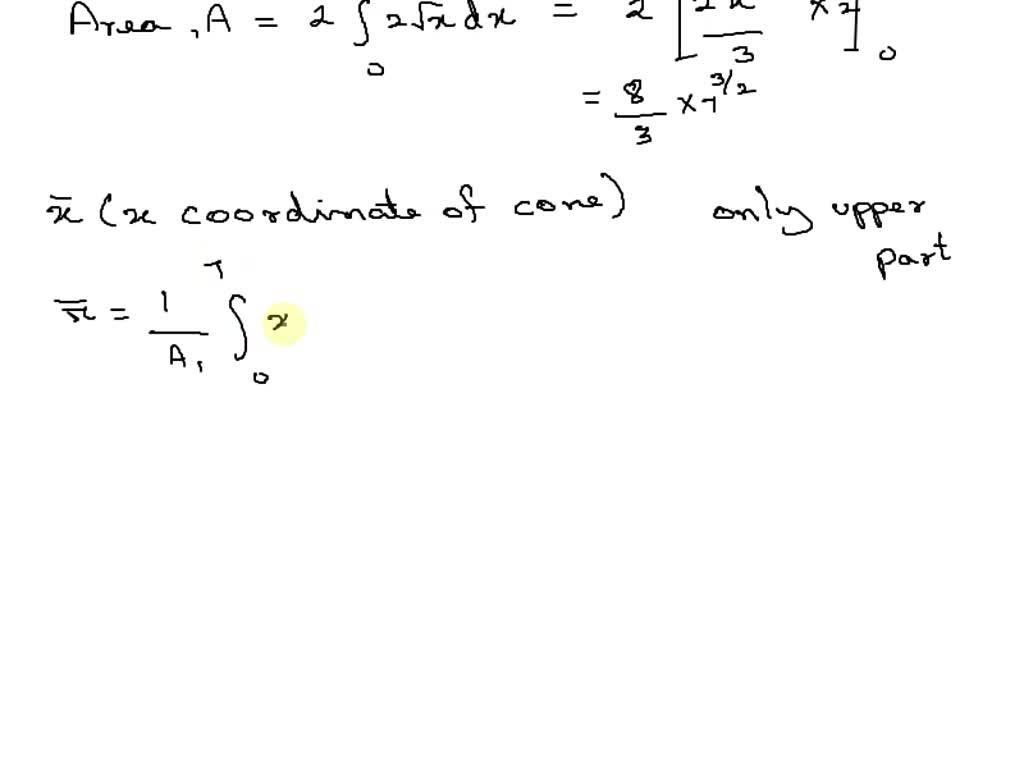 Area, A = 2 ∫₀ 2√x dx = 2 [2x/3 × 2]₀
= 8/3 × 7^3/2
x̄ (x coordinate of cone) only upper part
x̄ = 1/A₁ ∫₀⁷ x